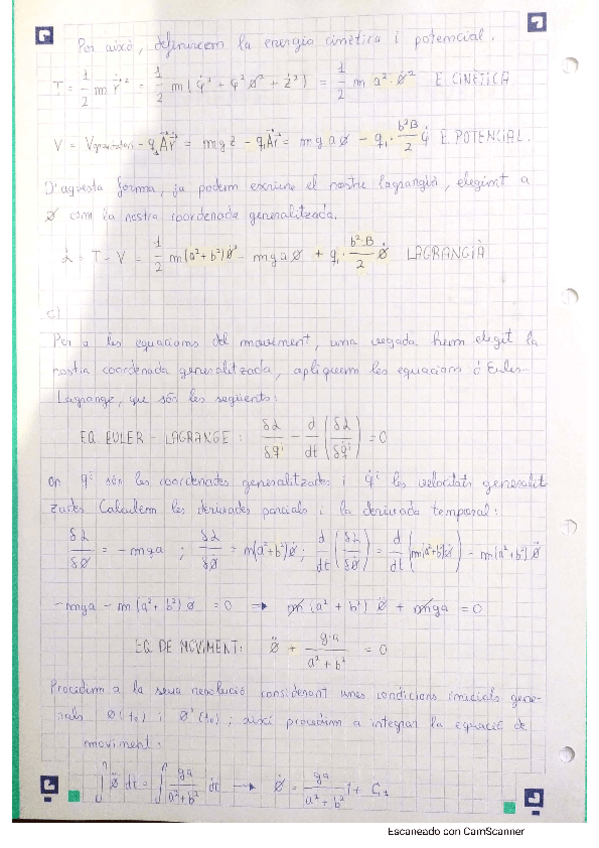 Per això, definirem la energia cinètica i potencial.
T = 1/2 m ṙ⃗² = 1/2 m (φ̇² + φ² Ø̇² + ż²) = 1/2 m a² · Ø̇² E. CINÈTICA
V = Vgravitatori - q₁A⃗ṙ⃗ = mgz - q₁A⃗ṙ⃗ = mgaØ - q₁ · b²B/2 φ̇ E. POTENCIAL.
D'aquesta forma, ja podem escriure el nostre lagrangià, elegint a
Ø com la nostra coordenada generalitzada.
L = T - V = 1/2 m(a² + b²)Ø̇² - mgaØ + q₁ · b²·B/2 Ø̇ LAGRANGIÀ
c)
Per a les equacions del moviment, una vegada hem elegit la
nostra coordenada generalitzada, apliquem les equacions d'Euler-
Lagrange, que són les següents:
EQ. EULER - LAGRANGE : δL/δqⁱ - d/dt (δL/δq̇ⁱ) = 0
on qⁱ són les coordenades generalitzades i q̇ⁱ les velocitats generalit
zades. Calculem les derivades parcials i la derivada temporal:
δL/δØ = - mga ; δL/δØ̇ = m(a²+b²)Ø̇ ; d/dt (δL/δØ̇) = d/dt (m(a²+b²)Ø̇) - m(a²+b²)Ø̈
-mga - m(a² + b²)Ø = 0 → m(a² + b²)Ø̈ + mga = 0
EQ. DE MOVIMENT: Ø̈ + g·a/(a² + b²) = 0
Procedim a la seua resolució considerant unes condicions inicials gene-
rals Ø(t₀) i Ø'(t₀); així procedim a integrar la equació de
moviment:
∫ Ø̈ dt = ∫ ga/(a²+b²) dt → Ø̇ = ga/(a² + b²) t + C₁
Escaneado con CamScanner